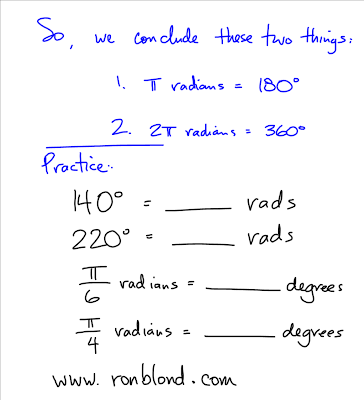 So, we conclude these two things:
1. π radians = 180°
2. 2π radians = 360°
Practice:
140° = ______ rads
220° = ______ rads
π/6 radians = ______ degrees
π/4 radians = ______ degrees
www.ronblond.com